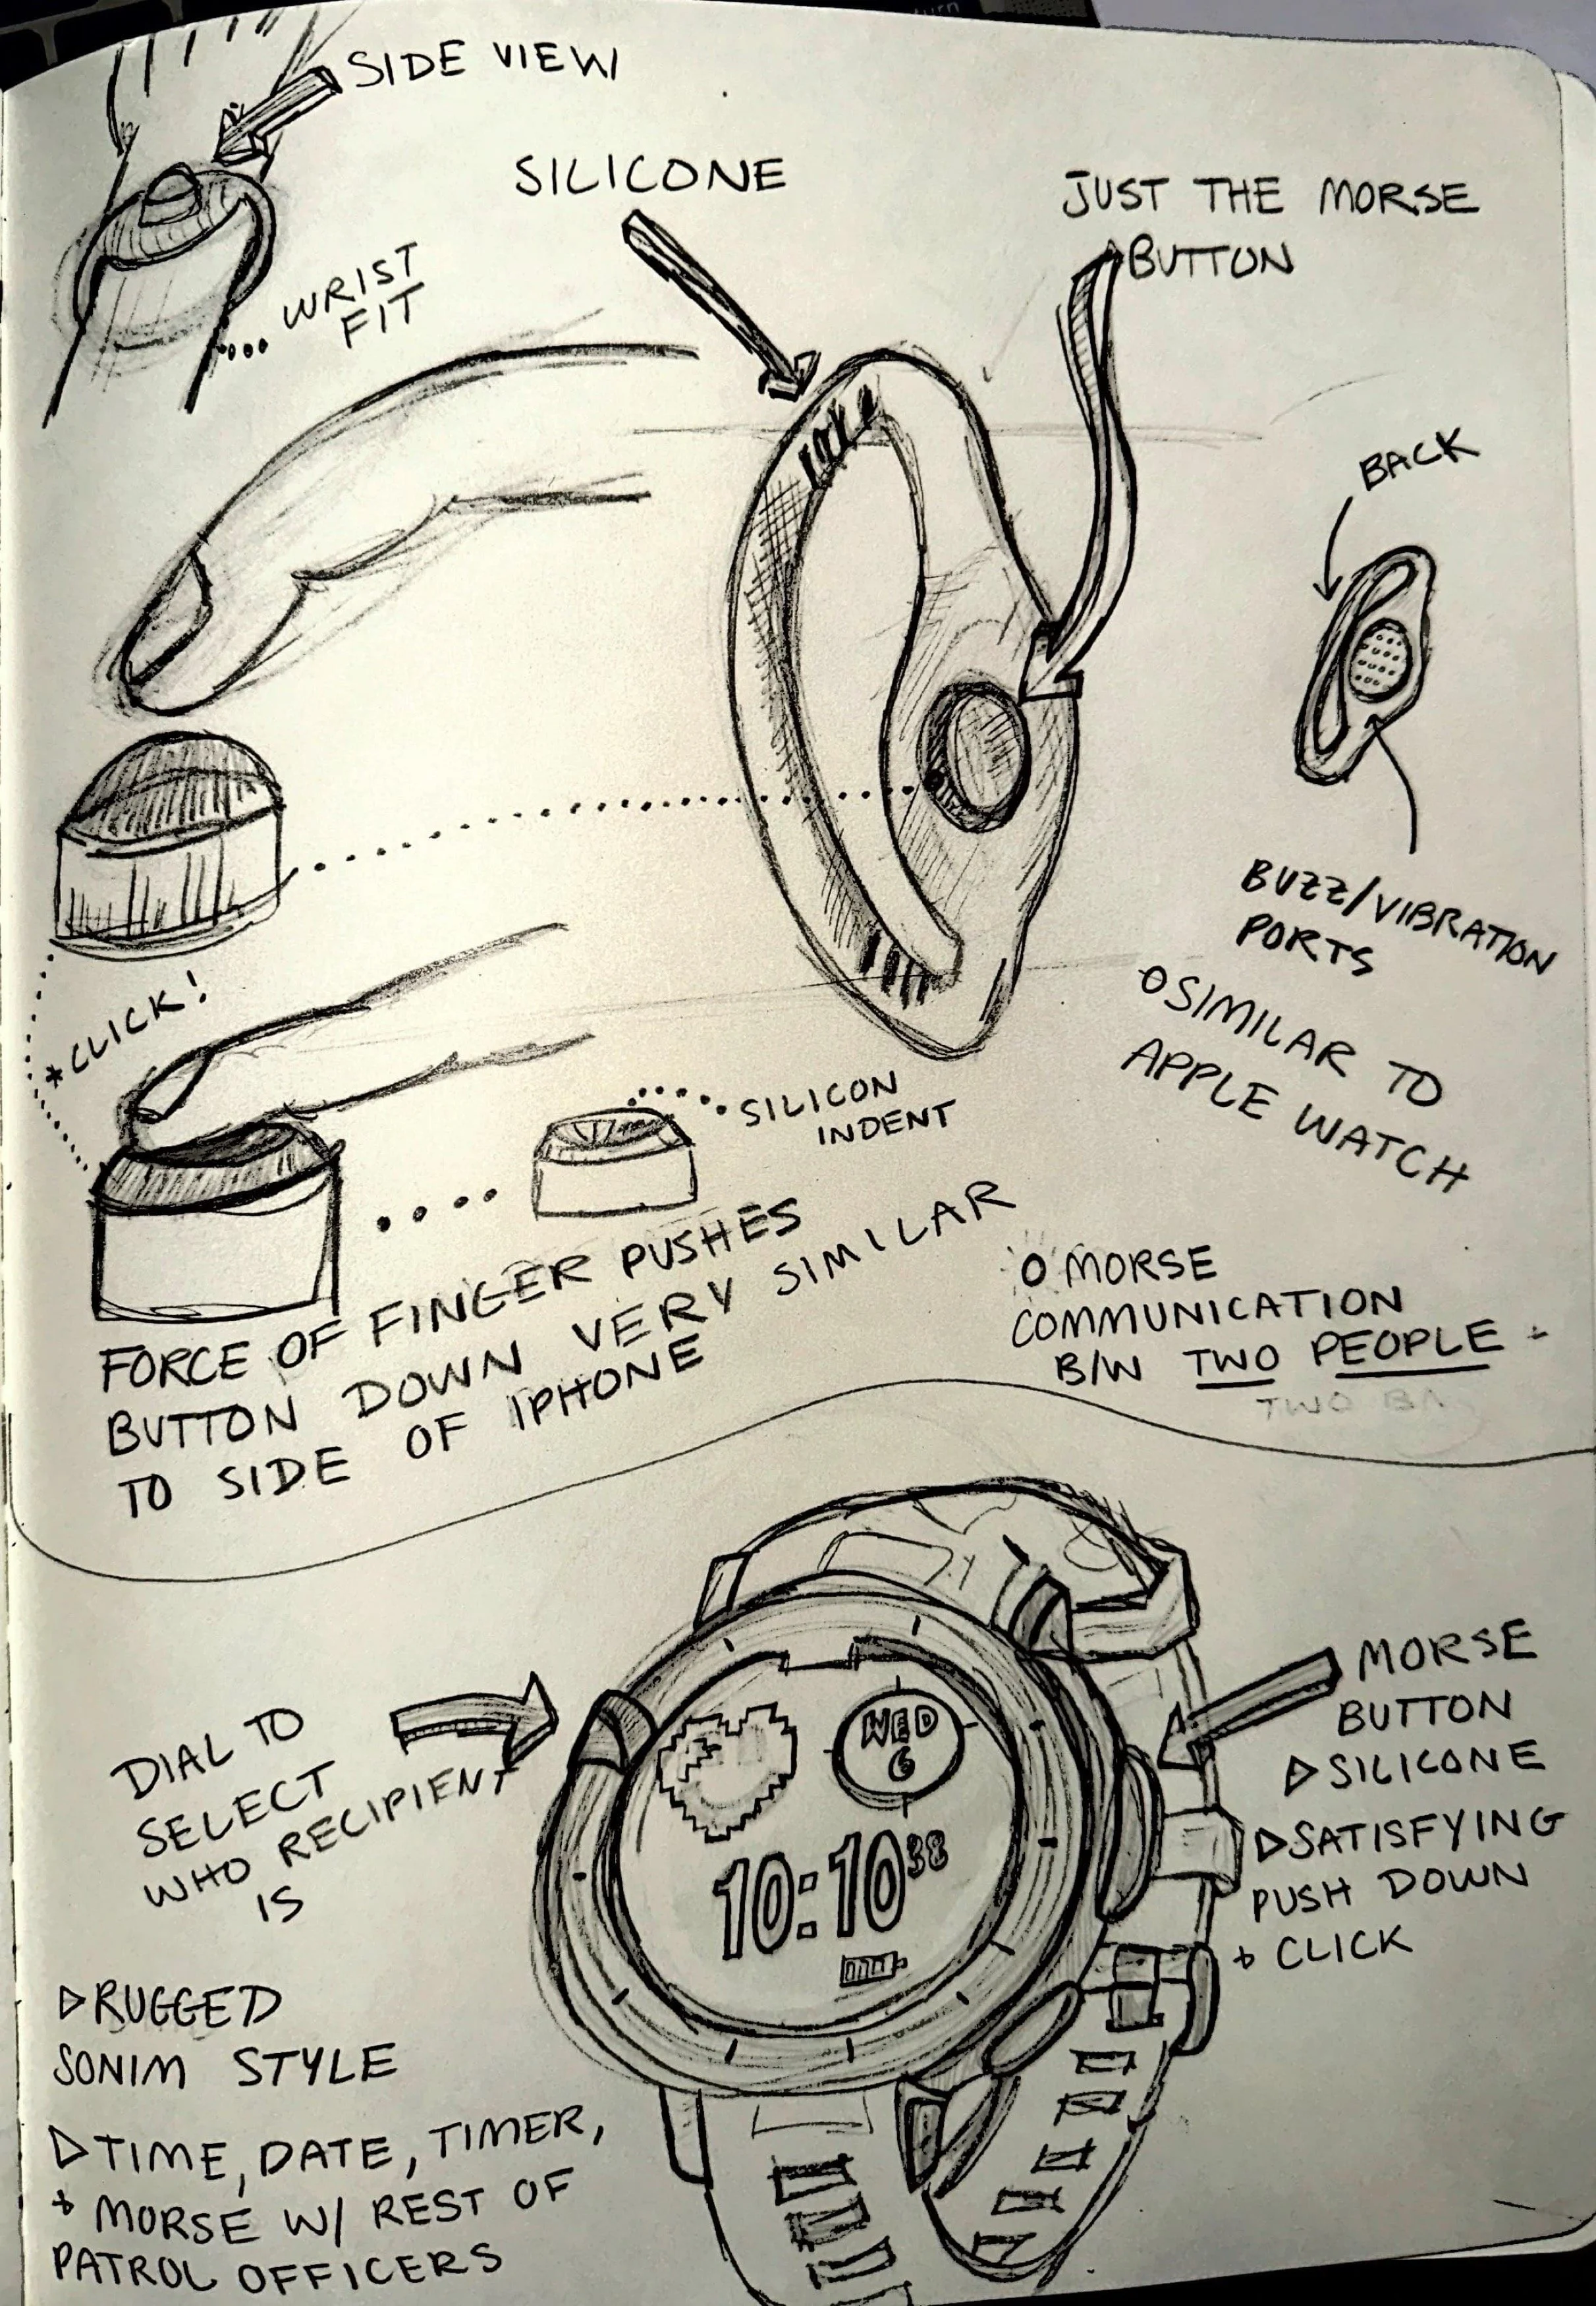 SIDE VIEW
WRIST
FIT
SILICONE
JUST THE MORSE
BUTTON
BACK
BUZZ/VIBRATION
PORTS
O SIMILAR TO
APPLE WATCH
*CLICK!
SILICON
INDENT
FORCE OF FINGER PUSHES
BUTTON DOWN VERY SIMILAR
TO SIDE OF IPHONE
O MORSE
COMMUNICATION
B/W TWO PEOPLE
DIAL TO
SELECT
WHO RECIPIENT
IS
WED
6
10:10 38
MORSE
BUTTON
▷SILICONE
▷SATISFYING
PUSH DOWN
+ CLICK
▷RUGGED
SONIM STYLE
▷TIME, DATE, TIMER,
+ MORSE W/ REST OF
PATROL OFFICERS